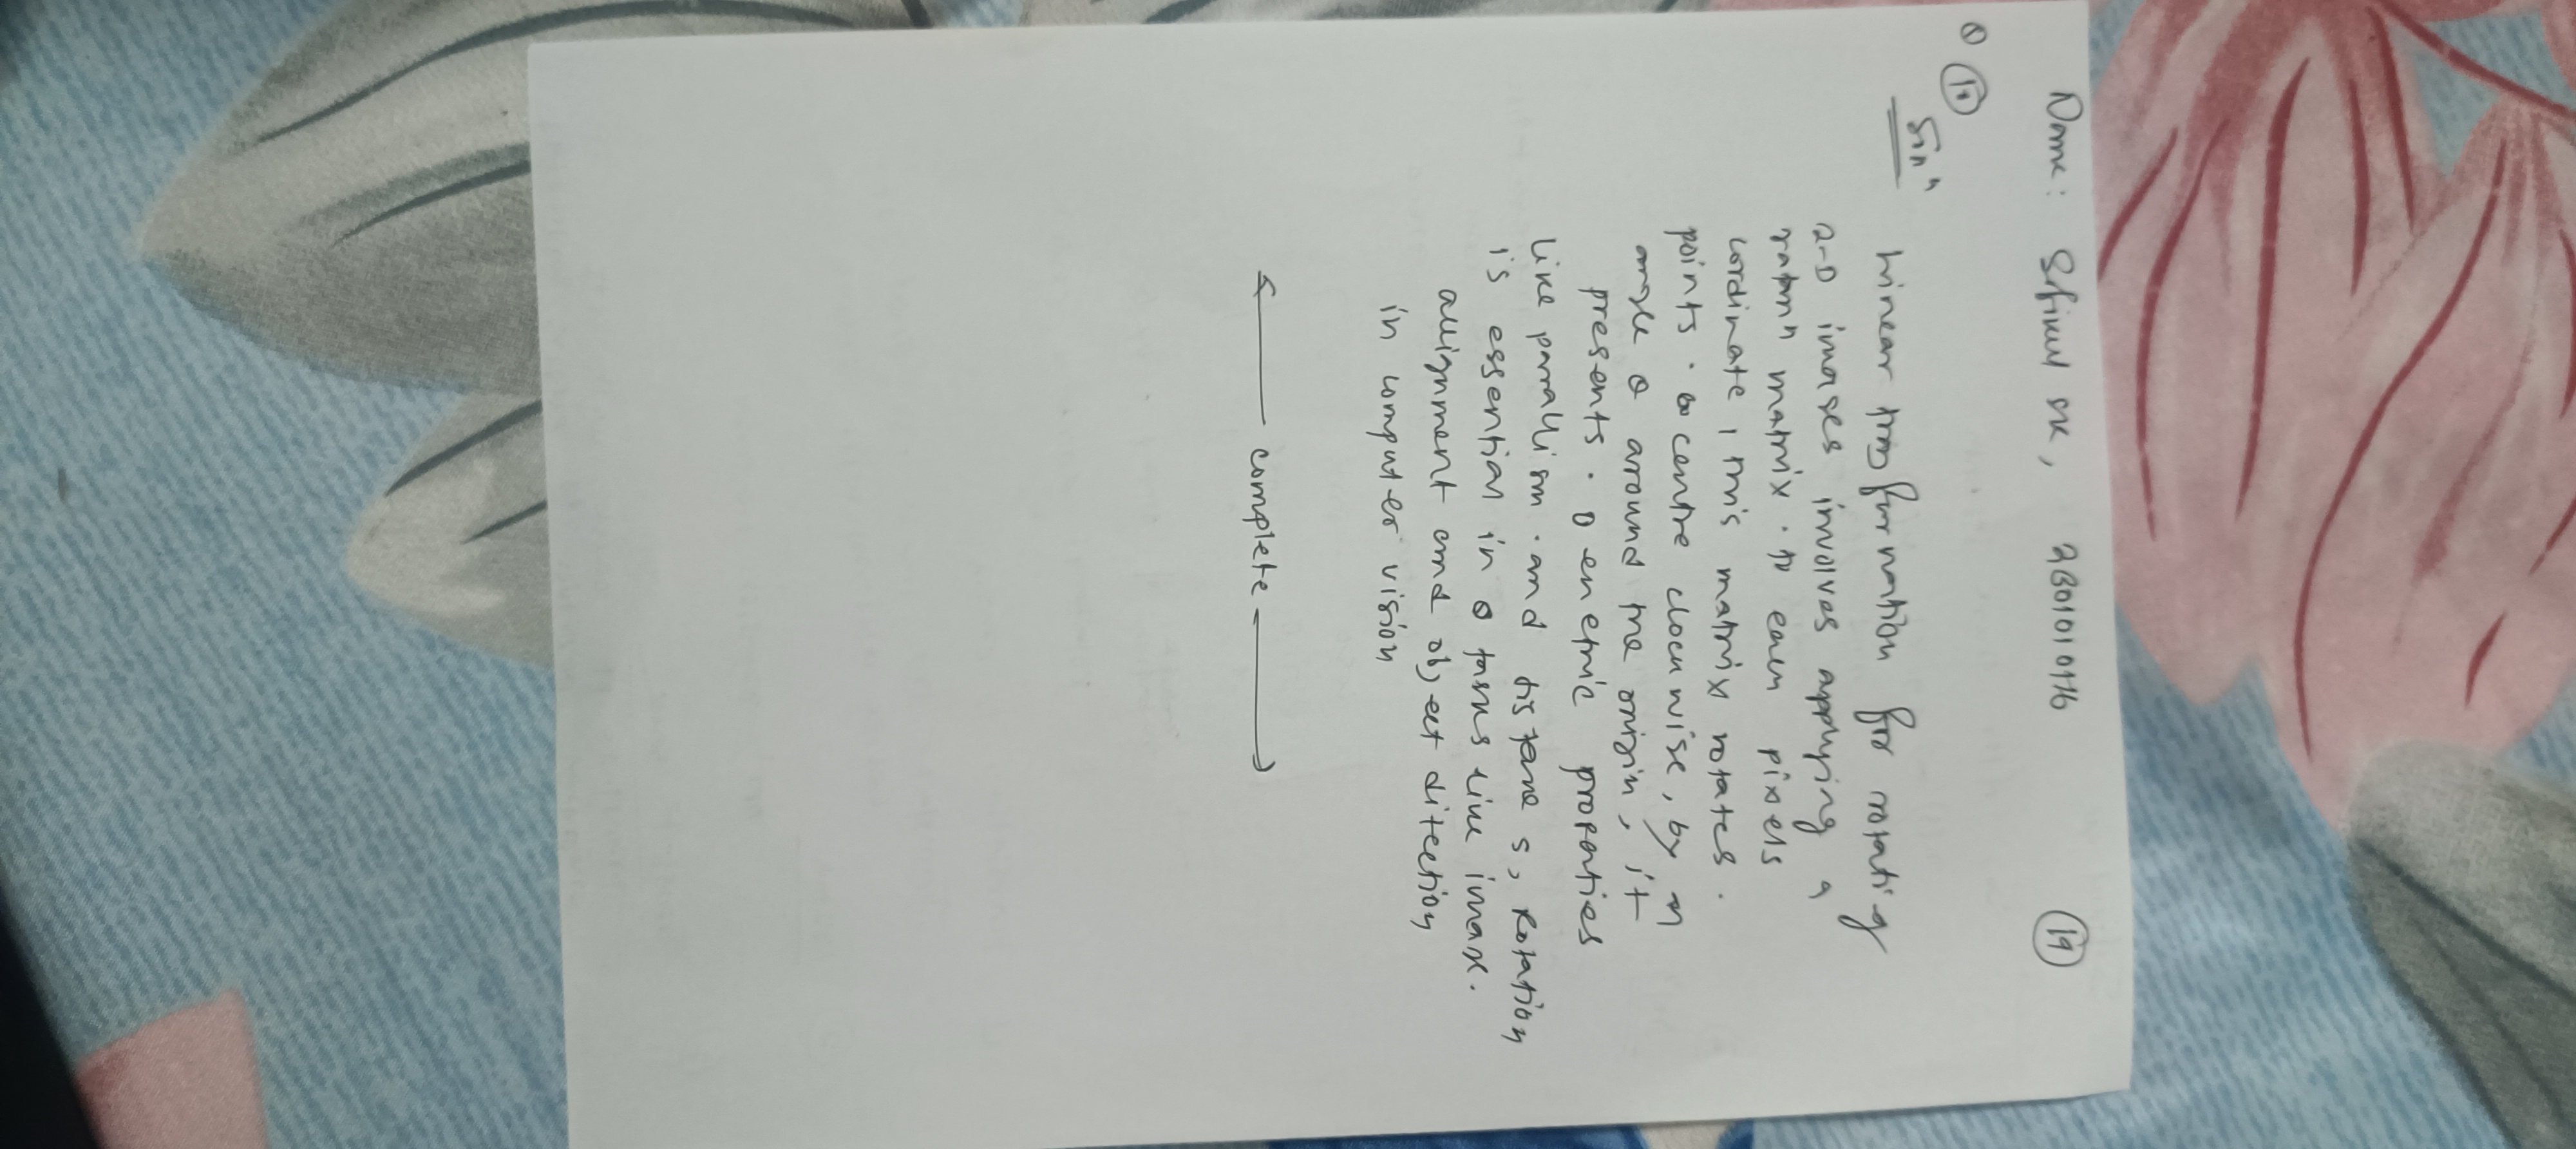 Name: Safikul sk, 2B0101046 (19)
Q (10)
Sol^n
Linear transformation for rotatig
2-D images involves applying a
rotat^n matrix. to each pixels
cordinate, this matrix rotates.
points. centre clockwise, by an
angle θ around the origin, it
presents. properties
Like parallism. and distance s, Rotation
is essential in tasks like image.
allignment and object ditection
in computer vision
← complete →